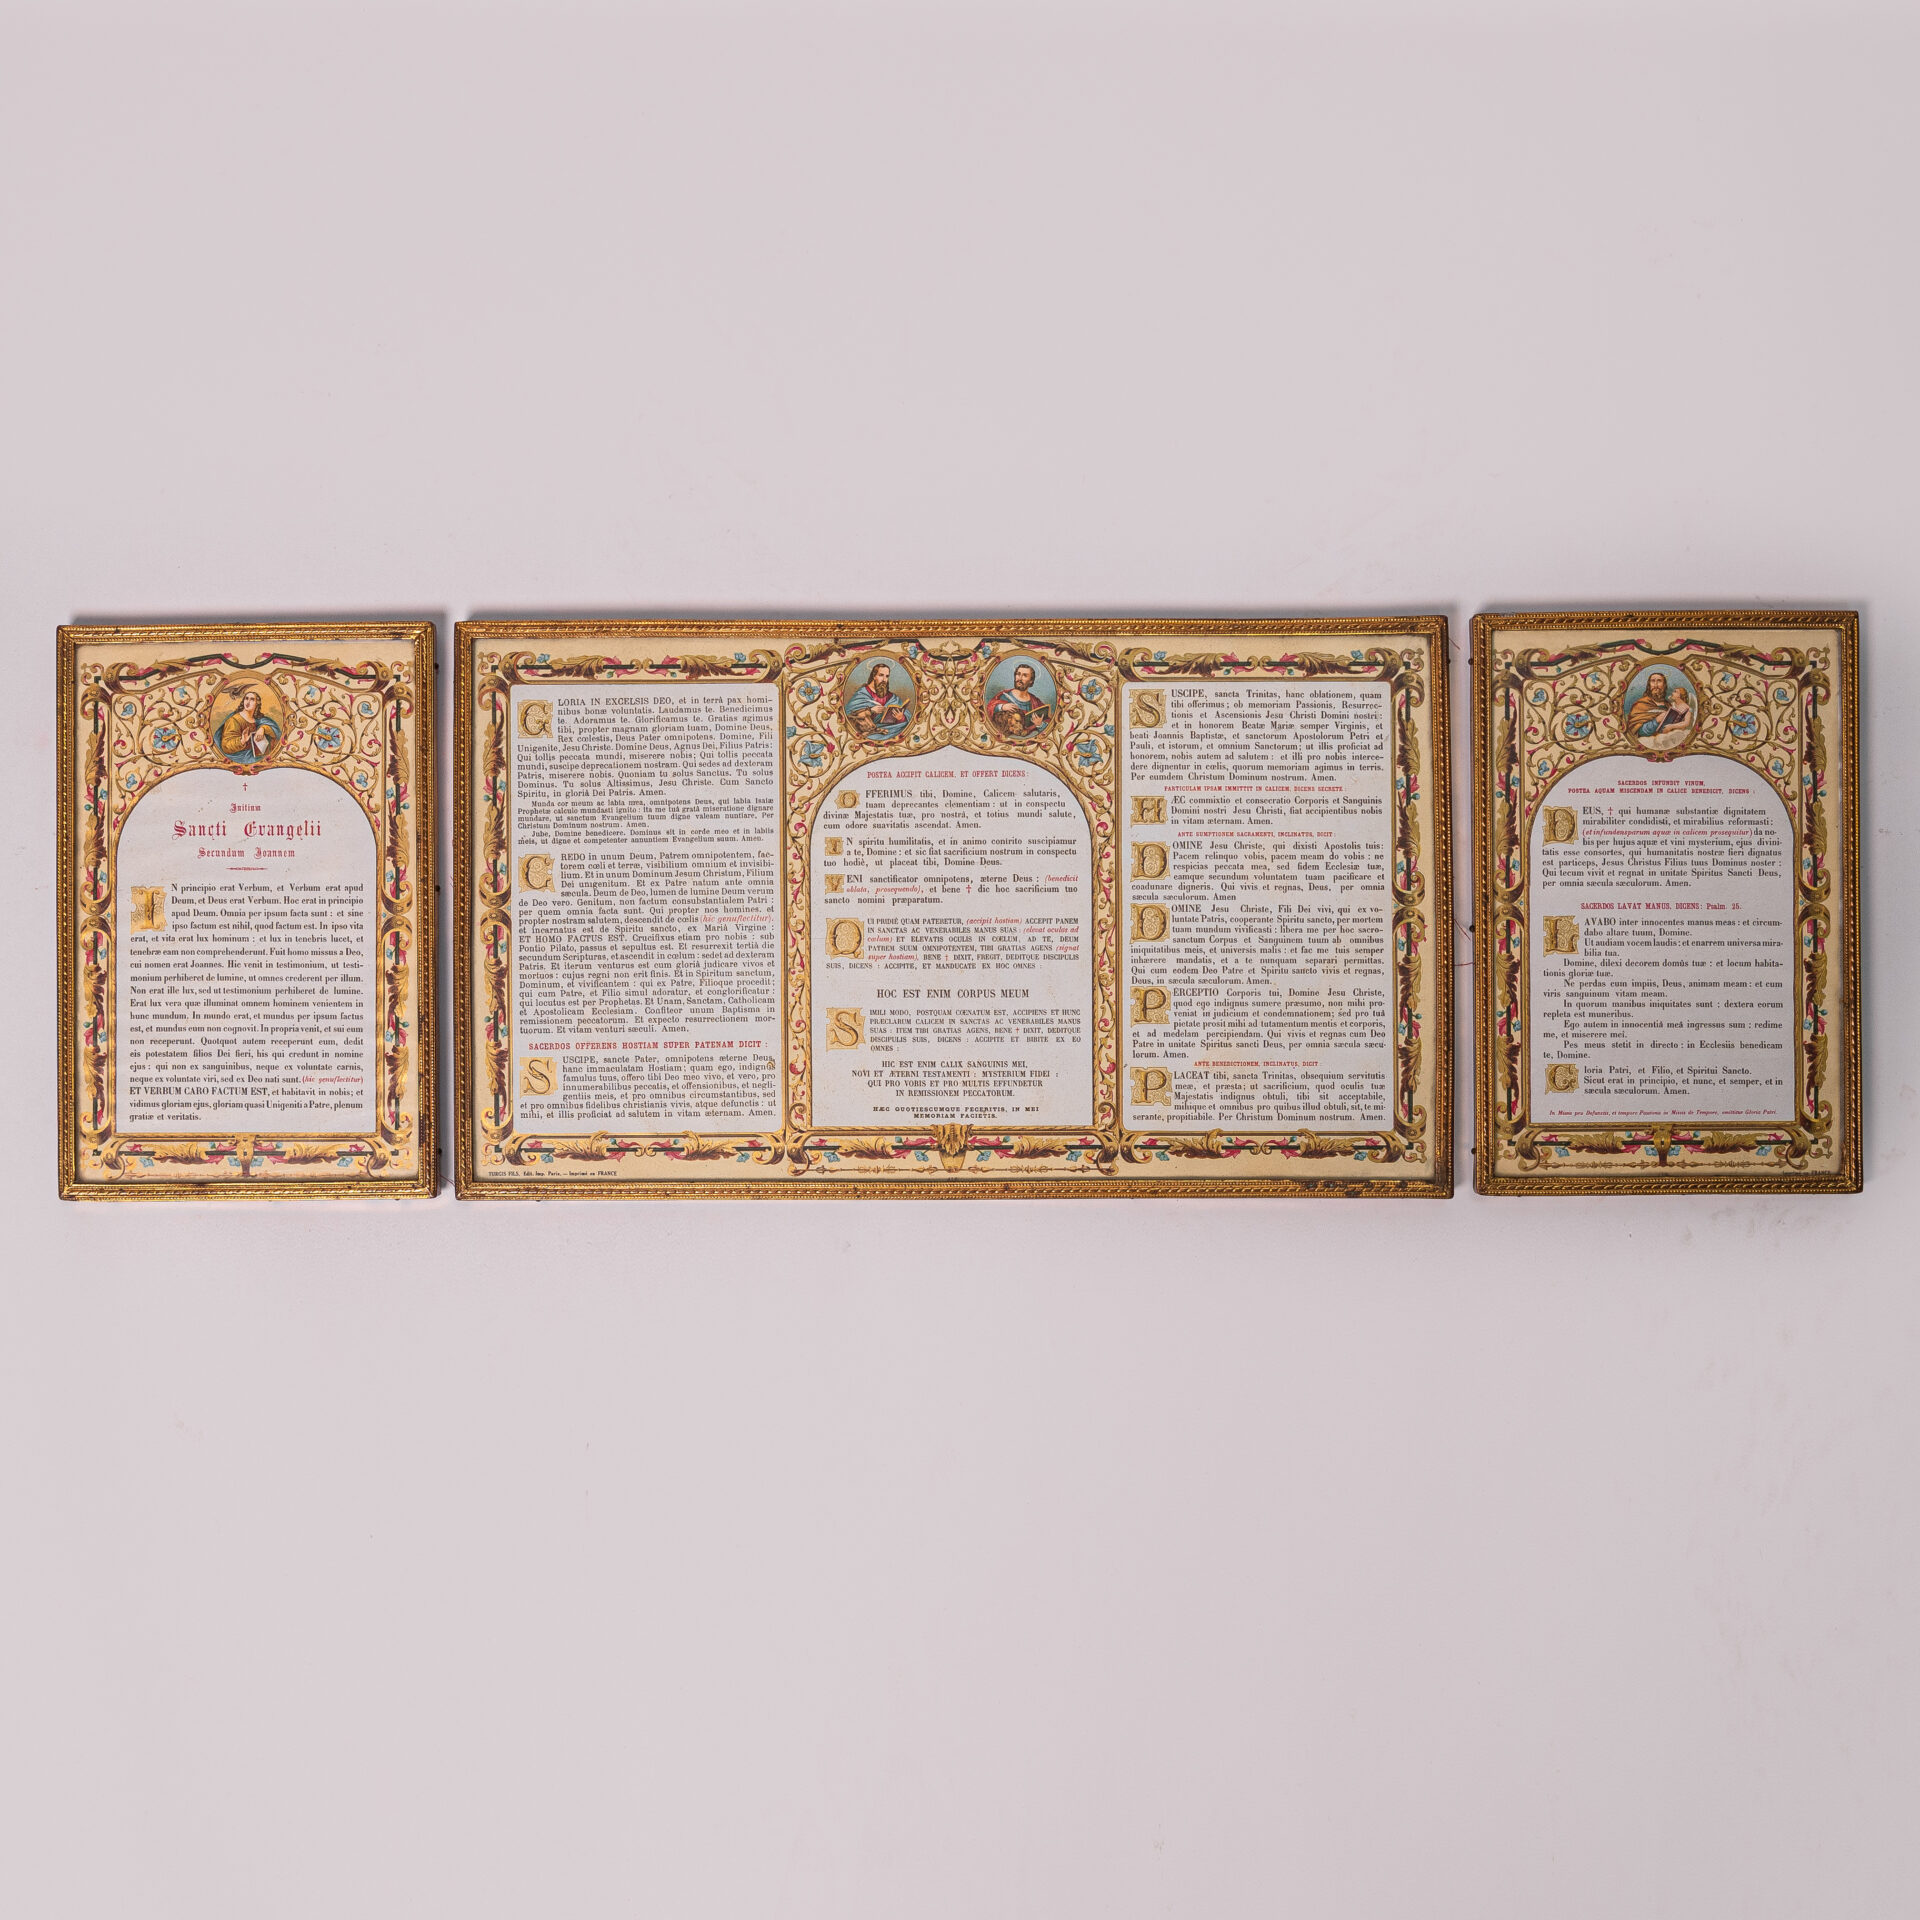 ✝
Initium
Sancti Evangelii
Secundum Joannem
IN principio erat Verbum, et Verbum erat apud
Deum, et Deus erat Verbum. Hoc erat in principio
apud Deum. Omnia per ipsum facta sunt : et sine
ipso factum est nihil, quod factum est. In ipso vita
erat, et vita erat lux hominum : et lux in tenebris lucet, et
tenebræ eam non comprehenderunt. Fuit homo missus a Deo,
cui nomen erat Joannes. Hic venit in testimonium, ut testi-
monium perhiberet de lumine, ut omnes crederent per illum.
Non erat ille lux, sed ut testimonium perhiberet de lumine.
Erat lux vera quæ illuminat omnem hominem venientem in
hunc mundum. In mundo erat, et mundus per ipsum factus
est, et mundus eum non cognovit. In propria venit, et sui eum
non receperunt. Quotquot autem receperunt eum, dedit
eis potestatem filios Dei fieri, his qui credunt in nomine
ejus : qui non ex sanguinibus, neque ex voluntate carnis,
neque ex voluntate viri, sed ex Deo nati sunt. (hic genuflectitur)
ET VERBUM CARO FACTUM EST, et habitavit in nobis; et
vidimus gloriam ejus, gloriam quasi Unigeniti a Patre, plenum
gratiæ et veritatis.
GLORIA IN EXCELSIS DEO, et in terrâ pax homi-
nibus bonæ voluntatis. Laudamus te. Benedicimus
te. Adoramus te. Glorificamus te. Gratias agimus
tibi, propter magnam gloriam tuam, Domine Deus,
Rex cœlestis, Deus Pater omnipotens. Domine, Fili
Unigenite, Jesu Christe. Domine Deus, Agnus Dei, Filius Patris:
Qui tollis peccata mundi, miserere nobis; Qui tollis peccata
mundi, suscipe deprecationem nostram. Qui sedes ad dexteram
Patris, miserere nobis. Quoniam tu solus Sanctus. Tu solus
Dominus. Tu solus Altissimus, Jesu Christe. Cum Sancto
Spiritu, in gloriâ Dei Patris. Amen.
Munda cor meum ac labia mea, omnipotens Deus, qui labia Isaïæ
Prophetæ calculo mundasti ignito : ita me tuâ gratâ miseratione dignare
mundare, ut sanctum Evangelium tuum digne valeam nuntiare. Per
Christum Dominum nostrum. Amen.
Jube, Domine benedicere. Dominus sit in corde meo et in labiis
meis, ut digne et competenter annuntiem Evangelium suum. Amen.
CREDO in unum Deum, Patrem omnipotentem, fac-
torem cœli et terræ, visibilium omnium et invisibi-
lium. Et in unum Dominum Jesum Christum, Filium
Dei unigenitum. Et ex Patre natum ante omnia
sæcula. Deum de Deo, lumen de lumine Deum verum
de Deo vero. Genitum, non factum consubstantialem Patri :
per quem omnia facta sunt. Qui propter nos homines, et
propter nostram salutem, descendit de cœlis (hic genuflectitur).
et incarnatus est de Spiritu sancto, ex Mariâ Virgine :
ET HOMO FACTUS EST. Crucifixus etiam pro nobis : sub
Pontio Pilato, passus et sepultus est. Et resurrexit tertiâ die
secundum Scripturas, et ascendit in cœlum : sedet ad dexteram
Patris. Et iterum venturus est cum gloriâ judicare vivos et
mortuos : cujus regni non erit finis. Et in Spiritum sanctum,
Dominum, et vivificantem : qui ex Patre, Filioque procedit;
qui cum Patre, et Filio simul adoratur, et conglorificatur :
qui locutus est per Prophetas. Et Unam, Sanctam, Catholicam
et Apostolicam Ecclesiam. Confiteor unum Baptisma in
remissionem peccatorum. Et expecto resurrectionem mor-
tuorum. Et vitam venturi sæculi. Amen.
SACERDOS OFFERENS HOSTIAM SUPER PATENAM DICIT :
SUSCIPE, sancte Pater, omnipotens æterne Deus,
hanc immaculatam Hostiam; quam ego, indignus
famulus tuus, offero tibi Deo meo vivo, et vero, pro
innumerabilibus peccatis, et offensionibus, et negli-
gentiis meis, et pro omnibus circumstantibus, sed
et pro omnibus fidelibus christianis vivis, atque defunctis : ut
mihi, et illis proficiat ad salutem in vitam æternam. Amen.
TURGIS FILS, Edit. Imp. Paris. — Imprimé en FRANCE
POSTEA ACCIPIT CALICEM, ET OFFERT DICENS :
OFFERIMUS tibi, Domine, Calicem salutaris,
tuam deprecantes clementiam : ut in conspectu
divinæ Majestatis tuæ, pro nostrâ, et totius mundi salute,
cum odore suavitatis ascendat. Amen.
IN spiritu humilitatis, et in animo contrito suscipiamur
a te, Domine : et sic fiat sacrificium nostrum in conspectu
tuo hodiè, ut placeat tibi, Domine Deus.
VENI sanctificator omnipotens, æterne Deus : (benedicit
oblata, prosequendo), et bene ✝ dic hoc sacrificium tuo
sancto nomini præparatum.
QUI PRIDIÈ QUAM PATERETUR, (accipit hostiam) ACCEPIT PANEM
IN SANCTAS AC VENERABILES MANUS SUAS : (elevat oculos ad
cœlum) ET ELEVATIS OCULIS IN CŒLUM, AD TE, DEUM
PATREM SUUM OMNIPOTENTEM, TIBI GRATIAS AGENS (signat
super hostiam), BENE ✝ DIXIT, FREGIT, DEDITQUE DISCIPULIS
SUIS, DICENS : ACCIPITE, ET MANDUCATE EX HOC OMNES :
HOC EST ENIM CORPUS MEUM
SIMILI MODO, POSTQUAM CŒNATUM EST, ACCIPIENS ET HUNC
PRÆCLARUM CALICEM IN SANCTAS AC VENERABILES MANUS
SUAS : ITEM TIBI GRATIAS AGENS, BENE ✝ DIXIT, DEDITQUE
DISCIPULIS SUIS, DICENS : ACCIPITE ET BIBITE EX EO
OMNES :
HIC EST ENIM CALIX SANGUINIS MEI,
NOVI ET ÆTERNI TESTAMENTI : MYSTERIUM FIDEI :
QUI PRO VOBIS ET PRO MULTIS EFFUNDETUR
IN REMISSIONEM PECCATORUM.
HÆC QUOTIESCUMQUE FECERITIS, IN MEI
MEMORIAM FACIETIS.
SUSCIPE, sancta Trinitas, hanc oblationem, quam
tibi offerimus; ob memoriam Passionis, Resurrec-
tionis et Ascensionis Jesu Christi Domini nostri :
et in honorem Beatæ Mariæ semper Virginis, et
beati Joannis Baptistæ, et sanctorum Apostolorum Petri et
Pauli, et istorum, et omnium Sanctorum; ut illis proficiat ad
honorem, nobis autem ad salutem : et illi pro nobis interce-
dere dignentur in cœlis, quorum memoriam agimus in terris.
Per eumdem Christum Dominum nostrum. Amen.
PARTICULAM IPSAM IMMITTIT IN CALICEM, DICENS SECRETE :
HÆC commixtio et consecratio Corporis et Sanguinis
Domini nostri Jesu Christi, fiat accipientibus nobis
in vitam æternam. Amen.
ANTE SUMPTIONEM SACRAMENTI, INCLINATUS, DICIT :
DOMINE Jesu Christe, qui dixisti Apostolis tuis:
Pacem relinquo vobis, pacem meam do vobis : ne
respicias peccata mea, sed fidem Ecclesiæ tuæ,
eamque secundum voluntatem tuam pacificare et
coadunare digneris. Qui vivis et regnas, Deus, per omnia
sæcula sæculorum. Amen
DOMINE Jesu Christe, Fili Dei vivi, qui ex vo-
luntate Patris, cooperante Spiritu sancto, per mortem
tuam mundum vivificasti : libera me per hoc sacro-
sanctum Corpus et Sanguinem tuum ab omnibus
iniquitatibus meis, et universis malis : et fac me tuis semper
inhærere mandatis, et a te nunquam separari permittas.
Qui cum eodem Deo Patre et Spiritu sancto vivis et regnas,
Deus, in sæcula sæculorum. Amen.
PERCEPTIO Corporis tui, Domine Jesu Christe,
quod ego indignus sumere præsumo, non mihi pro-
veniat in judicium et condemnationem; sed pro tuâ
pietate prosit mihi ad tutamentum mentis et corporis,
et ad medelam percipiendam. Qui vivis et regnas cum Deo
Patre in unitate Spiritus sancti Deus, per omnia sæcula sæcu-
lorum. Amen.
ANTE BENEDICTIONEM, INCLINATUS, DICIT :
PLACEAT tibi, sancta Trinitas, obsequium servitutis
meæ, et præsta; ut sacrificium, quod oculis tuæ
Majestatis indignus obtuli, tibi sit acceptabile,
mihique et omnibus pro quibus illud obtuli, sit, te mi-
serante, propitiabile. Per Christum Dominum nostrum. Amen.
SACERDOS INFUNDIT VINUM,
POSTEA AQUAM MISCENDAM IN CALICE BENEDICIT, DICENS :
DEUS, ✝ qui humanæ substantiæ dignitatem
mirabiliter condidisti, et mirabilius reformasti :
(et infundens parum aquæ in calicem prosequitur) da no-
bis per hujus aquæ et vini mysterium, ejus divini-
tatis esse consortes, qui humanitatis nostræ fieri dignatus
est particeps, Jesus Christus Filius tuus Dominus noster :
Qui tecum vivit et regnat in unitate Spiritus Sancti Deus,
per omnia sæcula sæculorum. Amen.
SACERDOS LAVAT MANUS, DICENS : Psalm. 25.
LAVABO inter innocentes manus meas : et circum-
dabo altare tuum, Domine.
Ut audiam vocem laudis : et enarrem universa mira-
bilia tua.
Domine, dilexi decorem domûs tuæ : et locum habita-
tionis gloriæ tuæ.
Ne perdas cum impiis, Deus, animam meam : et cum
viris sanguinum vitam meam.
In quorum manibus iniquitates sunt : dextera eorum
repleta est muneribus.
Ego autem in innocentiâ meâ ingressus sum : redime
me, et miserere mei.
Pes meus stetit in directo : in Ecclesiis benedicam
te, Domine.
Gloria Patri, et Filio, et Spiritui Sancto.
Sicut erat in principio, et nunc, et semper, et in
sæcula sæculorum. Amen.
In Missis pro Defunctis, et tempore Passionis in Missis de Tempore, omittitur Gloria Patri.
Imprimé en FRANCE